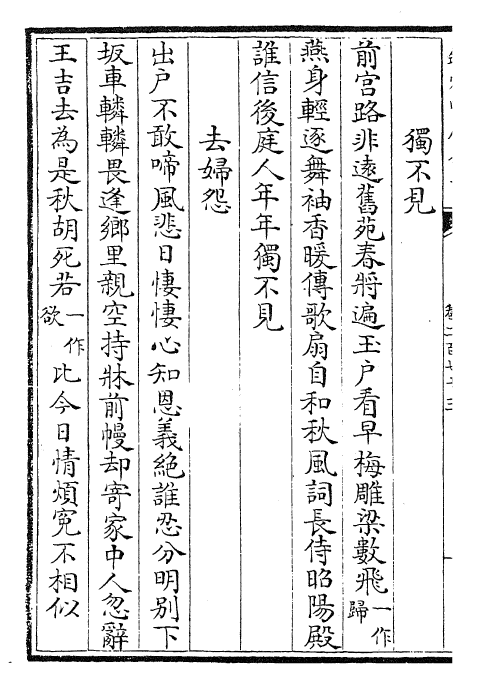 獨不見
前宫路非逺舊苑春將遍玉户看早梅雕梁數飛一作歸
燕身輕逐舞袖香暖傳歌扇自和秋風詞長侍昭陽殿
誰信後庭人年年獨不見
去婦怨
出户不敢啼風悲日悽悽心知恩義絶誰忍分明别下
坂車轔轔畏逢鄉里親空持牀前幔却寄家中人忽辭
王吉去為是秋胡死若一作欲比今日情煩寃不相似